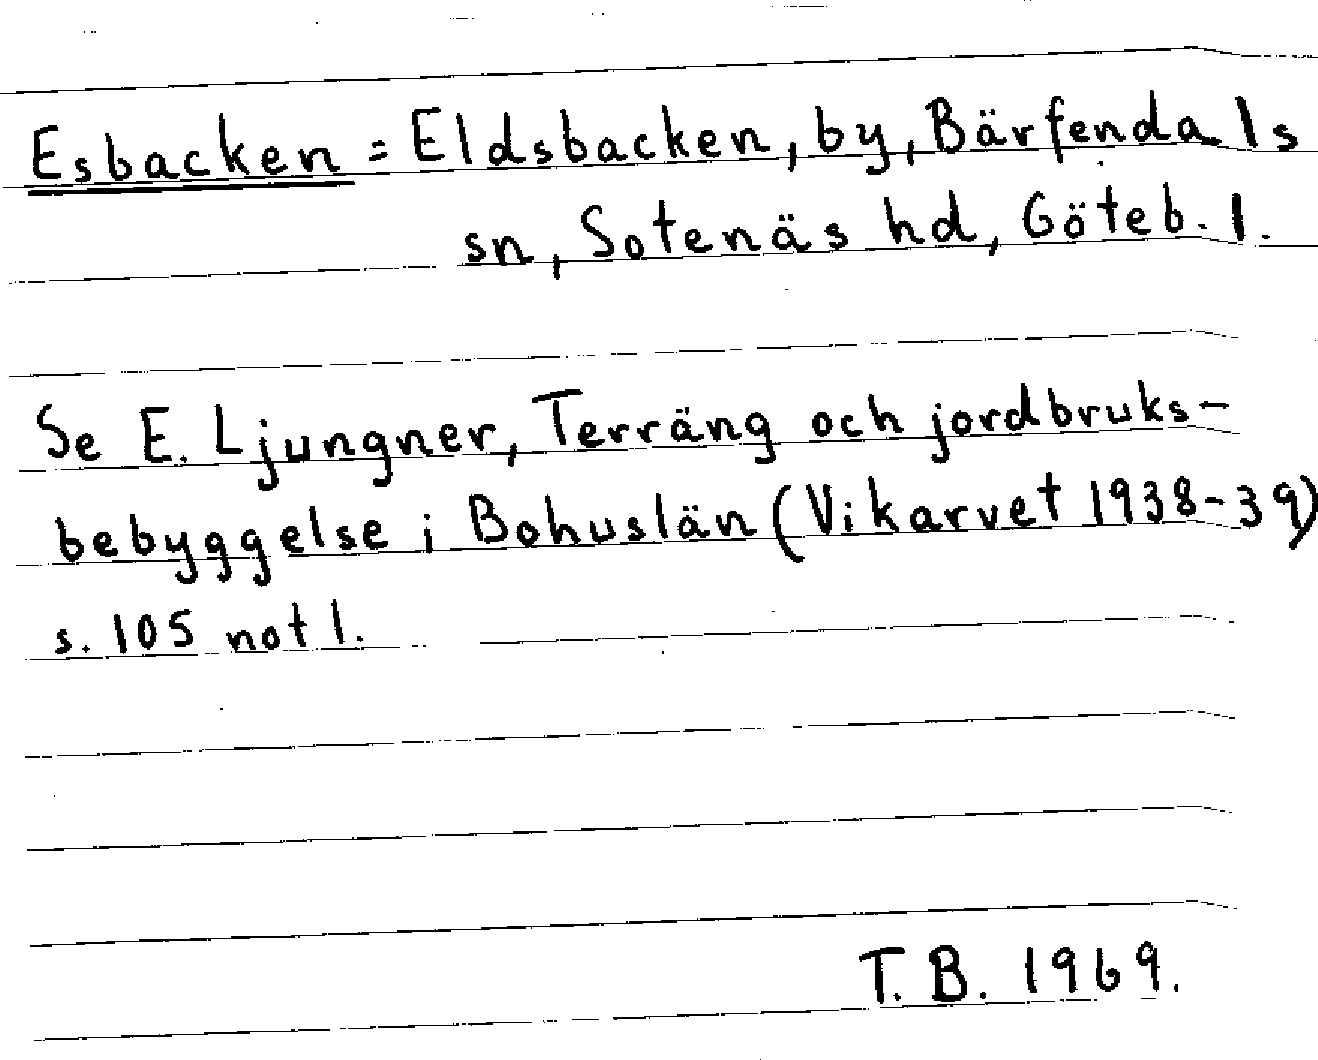 Esbacken = Eldsbacken, by, Bärfendals
sn, Sotenäs hd, Göteb. l.
Se E. Ljungner, Terräng och jordbruks-
bebyggelse i Bohuslän (Vikarvet 1938-39)
s. 105 not 1.
T. B. 1969.